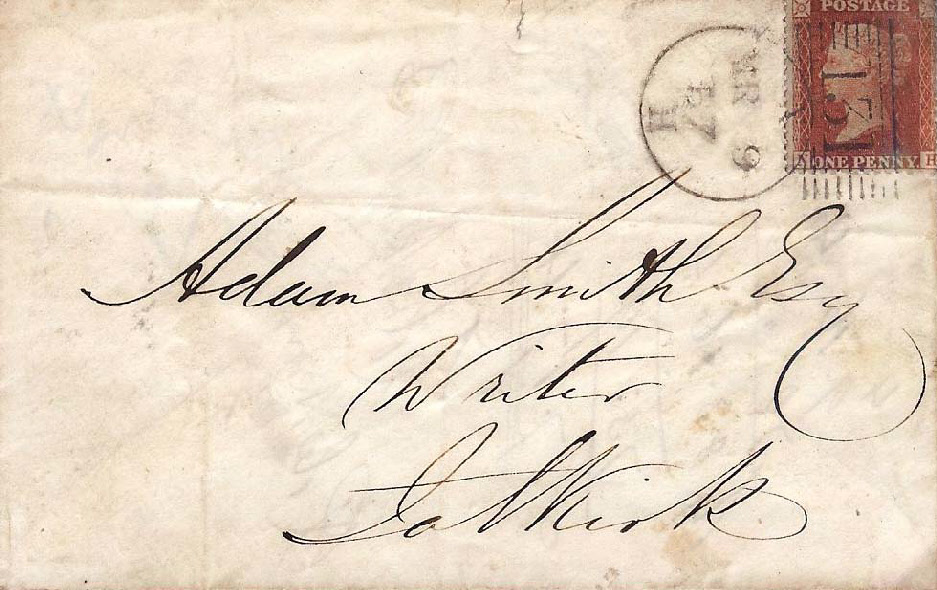 POSTAGE
131
ONE PENNY H
H
MR 9
57
Adam Smith Esq
Writer
Falkirk